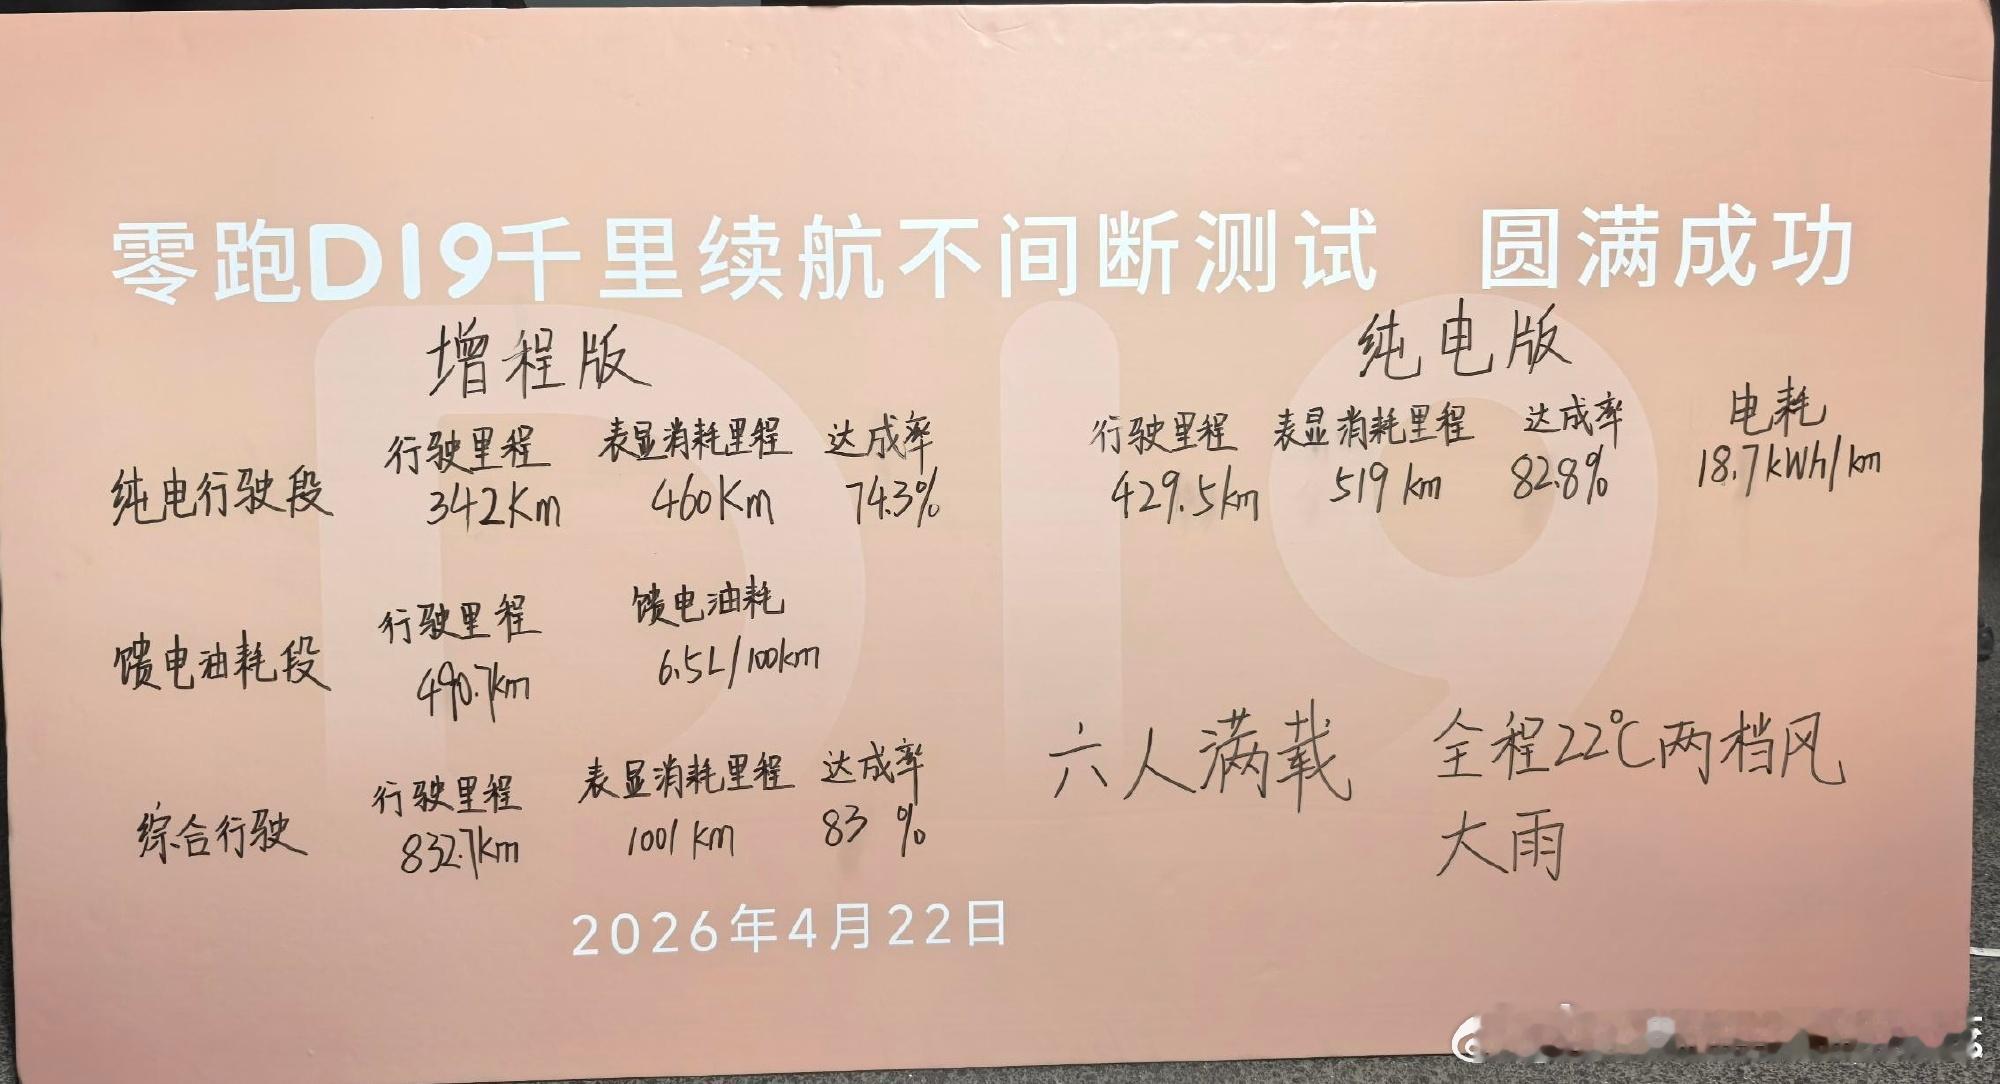 零跑D19千里续航不间断测试 圆满成功
增程版
纯电行驶段 行驶里程 表显消耗里程 达成率
342Km 460Km 74.3%
馈电油耗段 行驶里程 馈电油耗
490.7km 6.5L/100km
综合行驶 行驶里程 表显消耗里程 达成率
832.7km 1001km 83%
纯电版
行驶里程 表显消耗里程 达成率 电耗
429.5km 519km 82.8% 18.7kWh/km
六人满载 全程22℃两档风
大雨
2026年4月22日